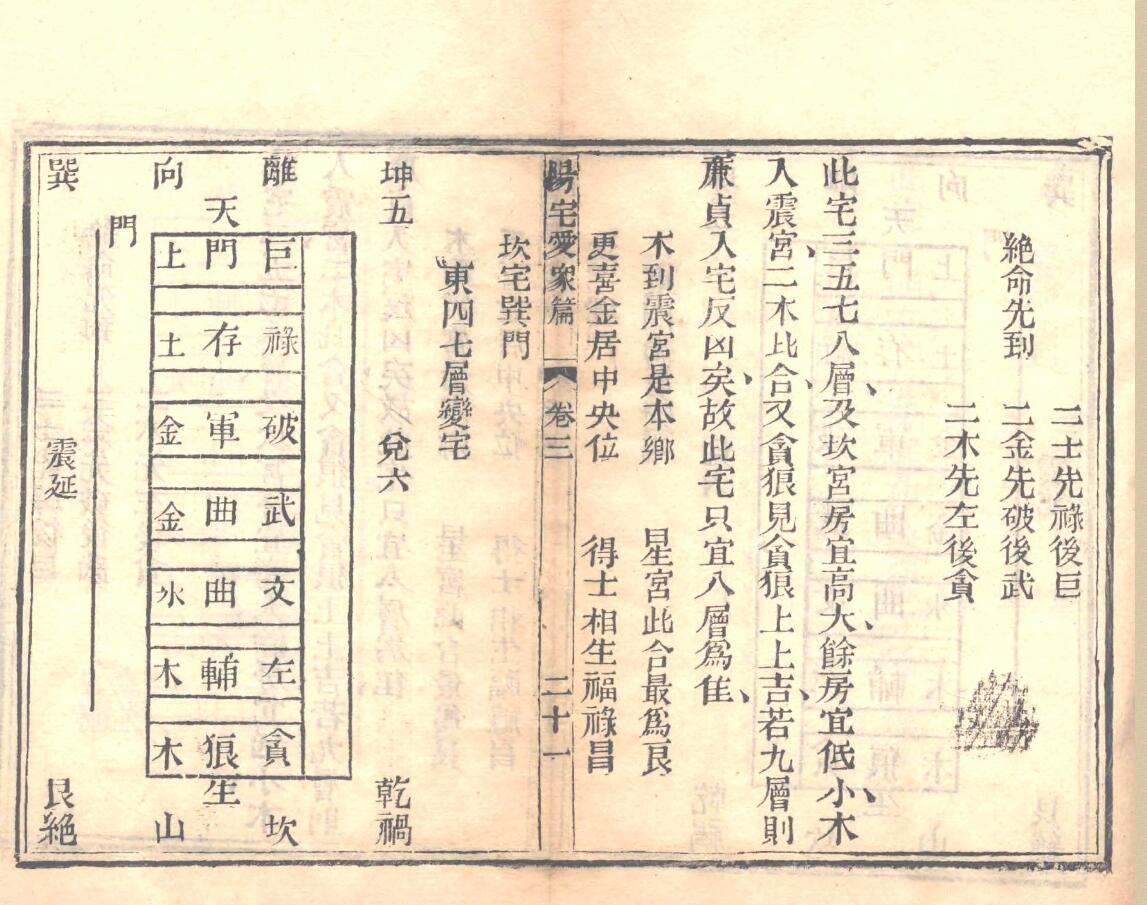 二土先祿後巨
絕命先到 二金先破後武
二木先左後貪
此宅三五七八層及坎宮房宜高大餘房宜低小木
入震宮二木比合又貪狼見貪狼上上吉若九層則
廉貞入宅反凶矣故此宅只宜八層為佳
木到震宮是本鄉 星宮此合最為良
更喜金居中央位 得土相生福祿昌
陽宅愛眾篇 卷三 二十一
坎宅巽門
東四七層變宅
坤五 兌六 乾禍
離 巨 祿 破 武 文 左 貪 坎
天門 存 軍 曲 曲 輔 狼生
向 土 土 金 金 水 木 木 山
門
巽 震延 艮絕